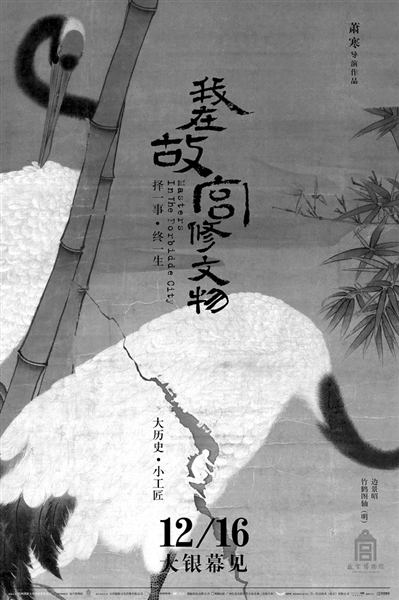 萧寒导演作品
我在故宫修文物
Masters
In The Forbidde City
择一事·终一生
大历史·小工匠
边景昭
竹鹤图轴（明）
故宫博物院
12/16
大银幕见